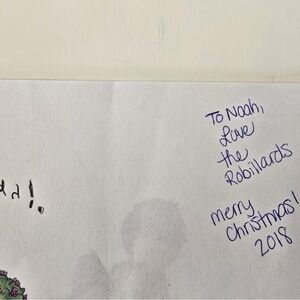 To Noah,
Love
the
Robillards
Merry
Christmas!
2018